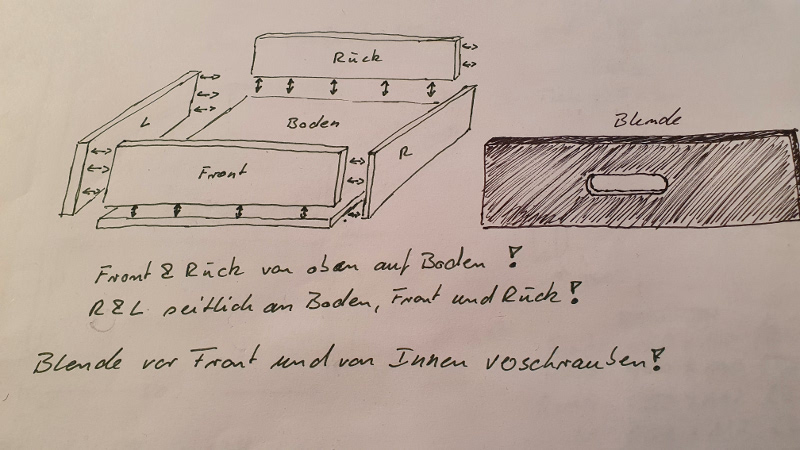 Rück
L
Boden
R
Front
Blende
Front & Rück von oben auf Boden!
R & L seitlich an Boden, Front und Rück!
Blende vor Front und von Innen verschrauben!